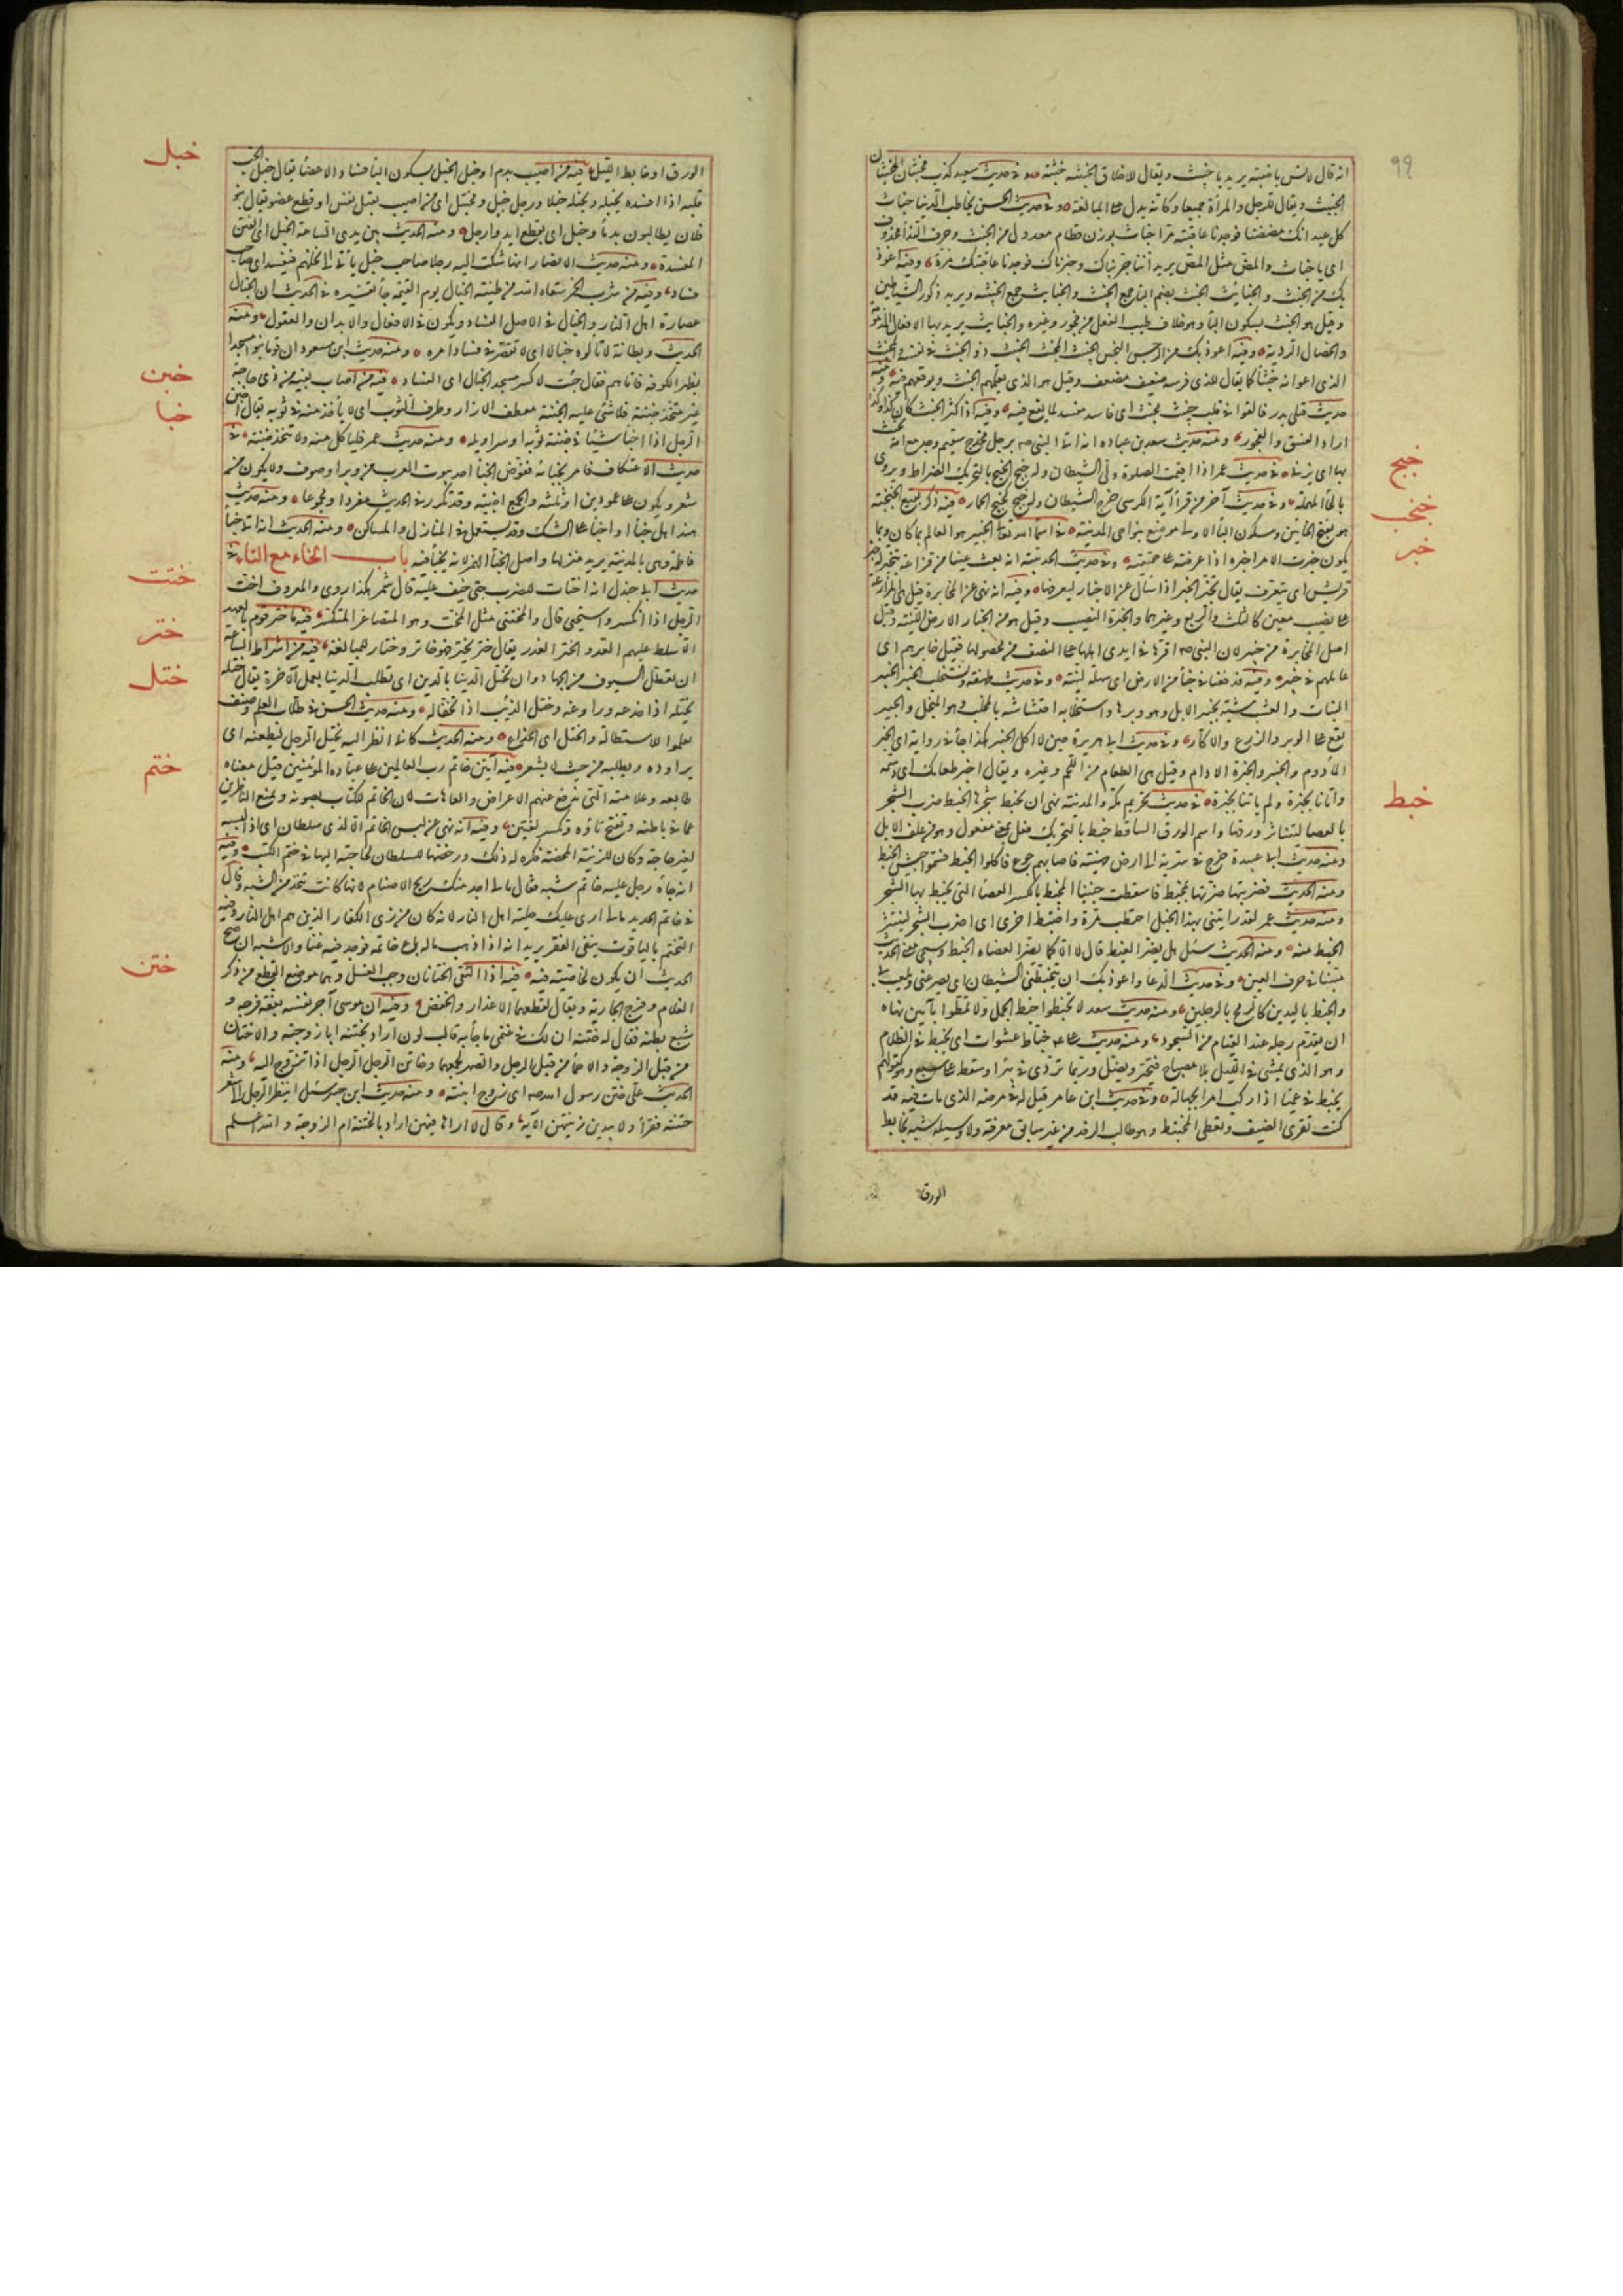 ٩٩
انه قال لانس يا خبثه يريد يا خبيث ويقال للاخلاق الخبيثه خبثه وفى حديث سعيد كذب مخبثان المخبثان
الخبيث ويقال للرجل والمرأة جميعا وكانه يدل على المبالغة وفى حديث الحسن يخاطب الدنيا خباث
كل عيدانك مضضنا فوجدنا عاقبته مرا خباث بوزن قطام معدول من الخبث وحرف النداء محذوف
اى يا خباث والمض مثل المص يريد اننا جربناك وخبرناك فوجدنا عاقبتك مرة وفيه اعوذ
بك من الخبث والخبائث الخبث بضم الباء جمع الخبيث والخبائث جمع الخبيثه ويريد ذكور الشياطين
وقيل هو الخبث بسكون الباء وهو خلاف طيب الفعل من فجور وغيره والخبائث يريد بها الافعال المذمومة
والخصال الردية وفيه اعوذ بك من الرجس النجس الخبيث المخبث الخبيث ذو الخبث فى نفسه والمخبث
الذى اعوانه خبثاء كما يقال للذى فرسه ضعيف مضعف وقيل هو الذى يعلمهم الخبث ويوقعهم فيه ومنه
حديث قتلى بدر فالقوا فى قليب خبيث مخبث اى فاسد مفسد لما يقع فيه وفيه اذا كثر الخبث كان كذا وكذا
اراد الفسق والفجور ومنه حديث سعد بن عباده انه اتى النبى صم برجل مخدج سقيم وجد مع امة يخبث
بها اى يزنى فى حديث عمر اذا اقيمت الصلوة ولى الشيطان وله خبج الخبج بالتحريك الضراط ويروى
بالحاء المهملة وفى حديث آخر من قرأ آية الكرسى خرج الشيطان وله خبج كخبج الحمار فيه ذكر بقيع الخبخبة
هو بفتح الخائين وسكون الباء الاولى موضع بنواحى المدينة فى اسماء الله تعالى الخبير هو العالم بما كان وبما
يكون خبرت الامر اخبره اذا عرفته على حقيقته وفى حديث الحديبية انه بعث عينا من خزاعة يتخبر له خبر
قريش اى يتعرف يقال تخبر الخبر اذا سأل عن الاخبار ليعرفها وفيه انه نهى عن المخابرة قيل هى المزارعة
على نصيب معين كالثلث والربع وغيرهما والخبرة النصيب وقيل هو من الخبار الارض اللينة وقيل
اصل المخابرة من خيبر لان النبى صم اقرها فى ايدى اهلها على النصف من محصولها فقيل خابرهم اى
عاملهم فى خيبر وفيه فدفعنا فى خبار من الارض اى سهلة لينة وفى حديث طهفة ونستخلب الخبير الخبير
النبات والعشب شبه بخبير الابل وهو وبرها واستخلابه احتشاشه بالمخلب وهو المنجل والخبير
يقع على الوبر والزرع والاكار وفى حديث ابى هريرة حين لا آكل الخبير هكذا جاء فى رواية اى الخبز
المأدوم والخبير والخبرة الادام وقيل هى الطعام من اللحم وغيره ويقال اخبر طعامك اى دسمه
واتانا بخبزة ولم يأتنا بخبرة فى حديث تحريم مكة والمدينة نهى ان يخبط شجرها الخبط ضرب الشجر
بالعصا ليتناثر ورقها واسم الورق الساقط خبط بالتحريك فعل بمعنى مفعول وهو من علف الابل
ومنه حديث ابى عبيدة خرج فى سرية الى ارض جهينة فاصابهم جوع فاكلوا الخبط فسموا جيش الخبط
ومنه الحديث فضربتها ضرتها بمخبط فاسقطت جنينا المخبط بالكسر العصا التى يخبط بها الشجر
ومنه حديث عمر لقد رايتنى بهذا الجبل احتطب مرة واختبط اخرى اى اضرب الشجر لينتثر
الخبط منه ومنه الحديث سئل هل يضر الغبط قال لا الا كما يضر العضاه الخبط وسيجئ معنى الحديث
مبينا فى حرف الغين وفى حديث الدعاء واعوذ بك ان يتخبطنى الشيطان اى يصرعنى ويلعب بى
والخبط باليدين كالرمح بالرجلين ومنه حديث سعد لا تخبطوا خبط الجمل ولا تمطوا بآمين نهاه
ان يقدم رجله عند القيام من السجود ومنه حديث على عم خباط عشوات اى يخبط فى الظلام
وهو الذى يمشى فى الليل بلا مصباح فيتحير ويضل وربما تردى فى بئر او سقط على سبع وهو كقولهم
يخبط فى عمياء اذا ركب امرا بجهالة وفى حديث ابن عامر قيل له فى مرضه الذى مات فيه قد
كنت تقرى الضيف وتعطى المختبط وهو طالب الرفد من غير سابق معرفة ولا وسيلة شبه بخابط
الورق
خبج
خبخب
خبر
خبط
الورق او خابط الليل فيه من اصيب بدم او خبل الخبل بسكون الباء فساد الاعضاء يقال خبل الحب
قلبه اذا افسده يخبله ويخبله خبلا ورجل خبل ومختبل اى من اصيب بقتل نفس او قطع عضو يقال بنو
فلان يطالبون بدماء وخبل اى بقطع ايد وارجل ومنه الحديث بين يدى الساعة الخبل اى الفتن
المفسدة ومنه حديث الانصار انها شكت اليه رجلا صاحب خبل يأتى الى نخلهم فيفسد اى صاحب
فساد وفيه من شرب الخمر سقاه الله من طينة الخبال يوم القيمة جاء تفسيره فى الحديث ان الخبال
عصارة اهل النار والخبال فى الاصل الفساد ويكون فى الافعال والابدان والعقول ومنه
الحديث وبطانة لا تألوه خبالا اى لا تقصر فى فساد امره ومنه حديث ابن مسعود ان قوما بنوا مسجدا
بظهر الكوفة فاتاهم فقال جئت لاكسر مسجد الخبال اى الفساد فيه من اصاب بفيه من ذى حاجة
غير متخذ خبنة فلا شئ عليه الخبنة معطف الازار وطرف الثوب اى لا يأخذ منه فى ثوبه يقال اخبن
الرجل اذا اخبأ شيئا فى خبنة ثوبه او سراويله ومنه حديث عمر فليأكل منه ولا يتخذ خبنة فى
حديث الاعتكاف فامر بخبائه فقوض الخباء احد بيوت العرب من وبر او صوف ولا يكون من
شعر ويكون على عمودين او ثلثه والجمع اخبية وقد تكرر فى الحديث مفردا ومجموعا ومنه حديث
هند اهل خباء او اخباء على الشك وقد يستعمل فى المنازل والمساكن ومنه الحديث انه اتى خباء
فاطمة وهى بالمدينة يريد منزلها واصل الخباء الهمز لانه يختبأ فيه باب الخاء مع التاء فى
حديث ابى جندل انه اختات للضرب حتى خيف عليه قال شمر هكذا روى والمعروف اخت
الرجل اذا انكسر واستحيى قال والمختتى مثل المخت وهو المتصاغر المنكسر فيه ما ختر قوم بالعهد
الا سلط عليهم العدو الختر الغدر يقال ختر يختر فهو خاتر وختار للمبالغة فيه من اشراط الساعة
ان تعطل السيوف من الجهاد وان تختل الدنيا بالدين اى تطلب الدنيا بعمل الآخرة يقال ختله
يختله اذا خدعه وراوغه وختل الذئب اذا تخفى له ومنه حديث الحسن فى طلاب العلم وصنف
تعلموا للاستطالة والختل اى الخداع ومنه الحديث كانى انظر اليه يختل الرجل ليطعنه اى
يراوده ويطلبه من حيث لا يشعر فيه آمين خاتم رب العالمين على عباده المؤمنين قيل معناه
طابعه وعلامته التى تدفع عنهم الاعراض والعاهات لان خاتم الكتاب يصونه ويمنع الناظرين
عما فى باطنه وتفتح تاؤه وتكسر لغتين وفيه انه نهى عن لبس الخاتم الا لذى سلطان اى اذا لبسه
لغير حاجة وكان للزينة المحضة فكره له ذلك ورخصها للسلطان لحاجته اليها فى ختم الكتب وفيه
انه جاءه رجل عليه خاتم شبه فقال ما لى اجد منك ريح الاصنام لانها كانت تتخذ من الشبه وقال
فى خاتم الحديد ما لى ارى عليك حلية اهل النار لانه كان من زى الكفار الذين هم اهل النار وفيه
التختم بالياقوت ينفى الفقر يريد انه اذا ذهب ماله باع خاتمه فوجد فيه غنا والاشبه ان صح
الحديث ان يكون لخاصية فيه فيه اذا التقى الختانان وجب الغسل وهما موضع القطع من ذكر
الغلام وفرج الجارية ويقال لقطعهما الاعذار والخفض وفيه ان موسى آجر نفسه بعفة فرجه و
شبع بطنه فقال له ختنه ان لك فى غنمى ما جاءت به قالب لون اراد بختنه ابا زوجته والاختان
من قبل الزوجة والاحماء من قبل الرجل والصهر يجمعهما وخاتن الرجل الرجل اذا تزوج اليه ومنه
الحديث على ختن رسول الله صم اى زوج ابنته ومنه حديث ابن جبير سئل اينظر الرجل الى شعر
ختنته فقرأ ولا يبدين زينتهن الآية وقال لا اراها فيهن اراد بالختنة ام الزوجة والله اعلم
خبل
خبن
خبا
ختت
ختر
ختل
ختم
ختن